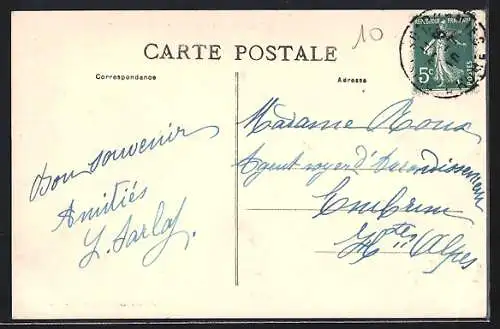 10
CARTE POSTALE
RÉPUBLIQUE FRANÇAISE
5c
POSTES
Correspondance
Adresse
Bon souvenir
Amitiés
Madame Roux
Agent voyer d'Arrondissement
Embrun
Htes Alpes